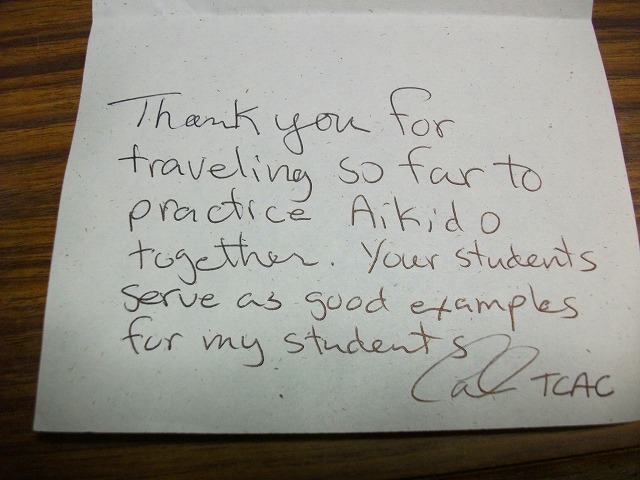 Thank you for
traveling so far to
practice Aikido
together. Your students
serve as good examples
for my students
TCAC